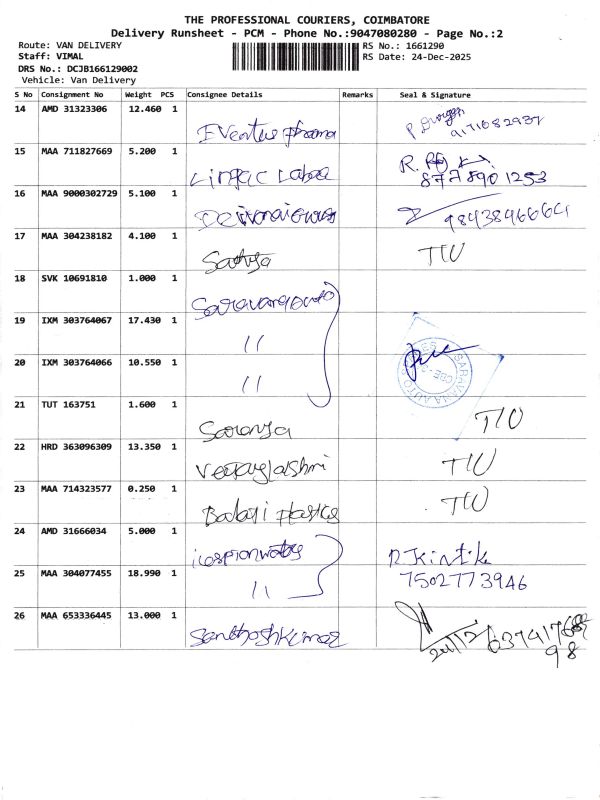 THE PROFESSIONAL COURIERS, COIMBATORE
Delivery Runsheet - PCM - Phone No.:9047080280 - Page No.:2
Route: VAN DELIVERY
Staff: VIMAL
DRS No.: DCJB166129002
Vehicle: Van Delivery
RS No.: 1661290
RS Date: 24-Dec-2025
S No Consignment No Weight PCS Consignee Details Remarks Seal & Signature
14 AMD 31323306 12.460 1
15 MAA 711827669 5.200 1
877 890 1253
16 MAA 9000302729 5.100 1
17 MAA 304238182 4.100 1 Sathya
18 SVK 10691810 1.000 1
19 IXM 303764067 17.430 1 11
20 IXM 303764066 10.550 1 11
SARAVANA AUTO
21 TUT 163751 1.600 1 Saranya
22 HRD 363096309 13.350 1
23 MAA 714323577 0.250 1 Balaji Plastics
24 AMD 31666034 5.000 1
25 MAA 304077455 18.990 1 11 7502773946
26 MAA 653336445 13.000 1 Santhoshkumar
24/12
98